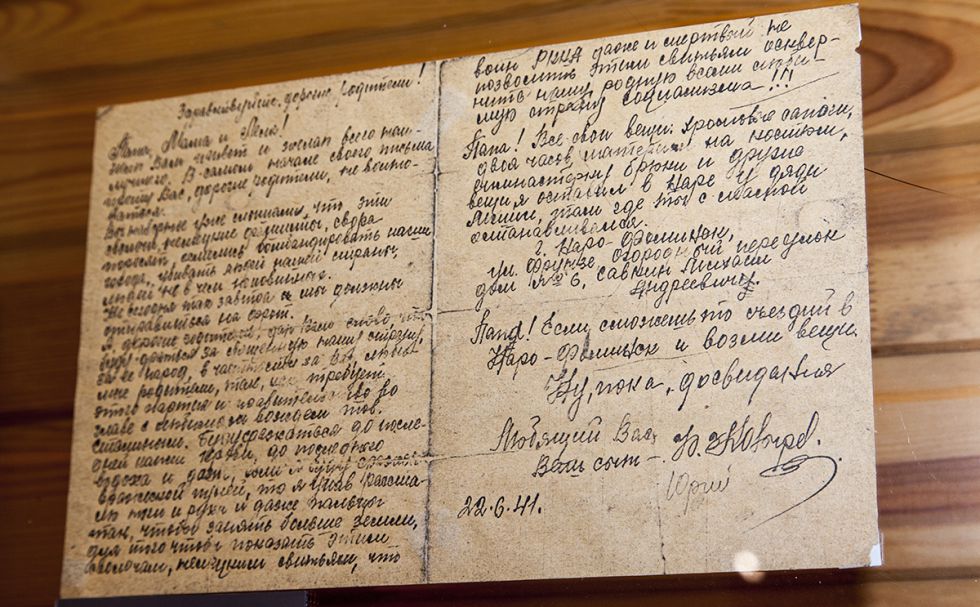 Здравствуйте, дорогие родители!
Папа, Мама и Лена!
Шлю Вам привет и желаю всего наи-
лучшего. В самом начале своего письма
прошу Вас, дорогие родители, не волно-
ваться.
Вы наверное уже слышали, что эти
сволочи, немецкие фашисты, свора
начали бомбардировать наши
города, убивать людей нашей страны,
людей не в чем неповинных.
Не сегодня так завтра и мы должны
отправиться на фронт.
Я дорогие родители, даю Вам слово, что
буду драться за священную нашу страну,
за ее народ, в частности за Вас, милые
мне родители, так, как требует
этого партия и правительство во
главе с великим вождем тов.
Сталиным. Буду сражаться до после-
дней капли крови, до последнего
вздоха и даже, если я буду сражен
вражеской пулей, то я упав
ноги и руки и даже пальцы
так, чтобы занять больше земли,
для того чтоб показать этим
сволочам, немецким свиньям, что
воин РККА даже и смертвый не
позволит этим свиньям осквер-
нить нашу родную всеми
мую страну социализма!!!
Папа! Все свои вещи: хромовые сапоги,
двое часов, материал на костюм,
гимнастерку, брюки и другие
вещи я оставил в Наре у дяди
Миши, там где ты с Настой
останавливался.
г. Наро-Фоминск,
ул. Фрунзе, Огородный переулок
дом № 6, Савкин Михаил
Андреевич.
Папа! Если сможешь то съезди в
Наро-Фоминск и возьми вещи.
Ну, пока, досвидания
Любящий Вас,
Ваш сын -
Юрий
22.6.41.